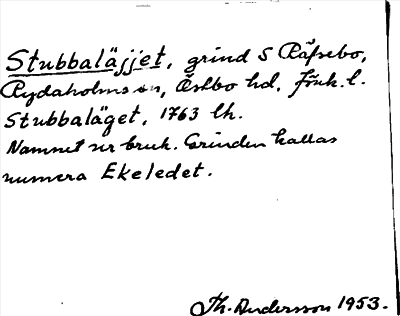 Stubbaläjjet, grind S Räfsebo,
Rydaholms sn, Östbo hd, Jönk. l.
Stubbaläget, 1763 lh.
Namnet ur bruk. Grinden kallas
numera Ekeledet.
Th. Andersson 1953.